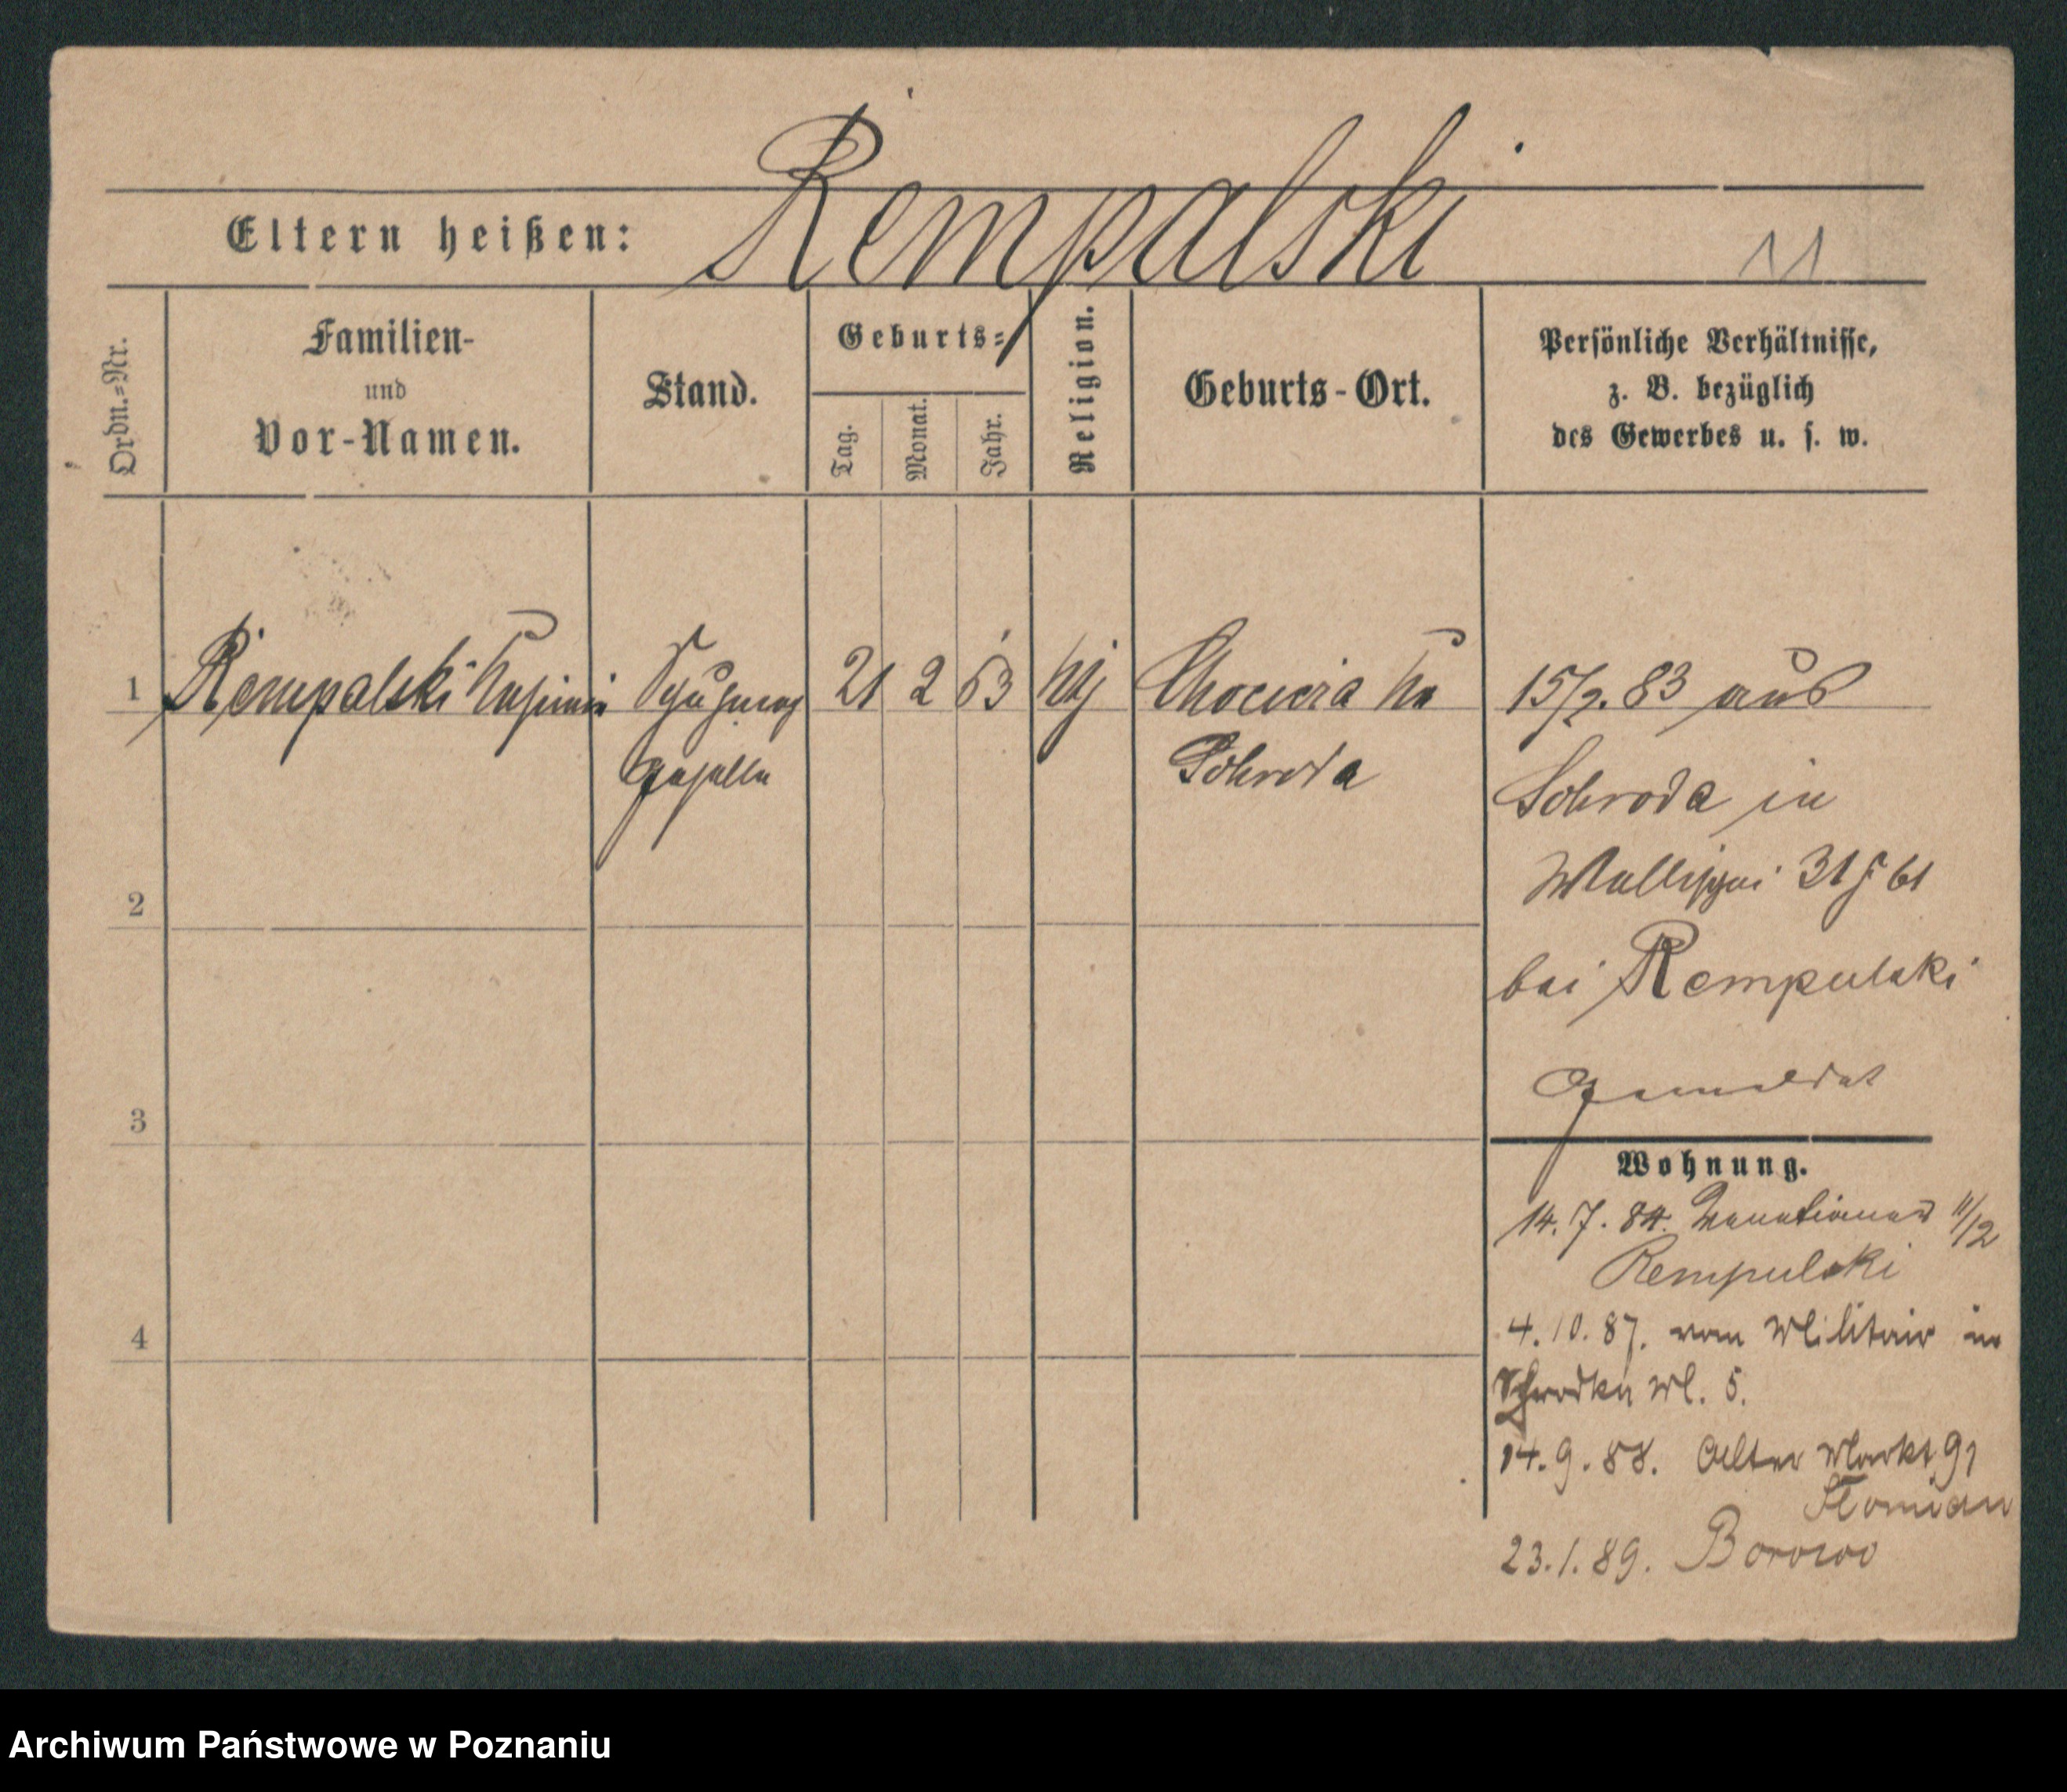 Rempalski
Eltern heißen:
11
Ordn.=Nr.
Familien-
und
Vor-Namen.
Stand.
Geburts=
Tag.
Monat.
Jahr.
Religion.
Geburts-Ort.
Persönliche Verhältnisse,
z. B. bezüglich
des Gewerbes u. s. w.
1 Rempalski Casimir
Schuhmach
geselle
21 2 63
Chocicza Kr
Schroda
15/2. 83 aus
Schroda in
Wallischei 31 b
bei Rempulski
gemeldet
2
3
4
Wohnung.
14. 7. 84. Venetianerst 11/12
Rempulski
4. 10. 87. vom Militair in
Schrodka M. 5.
14. 9. 88. Alter Markt 91
Slomian
23. 1. 89. Borowo
Archiwum Państwowe w Poznaniu